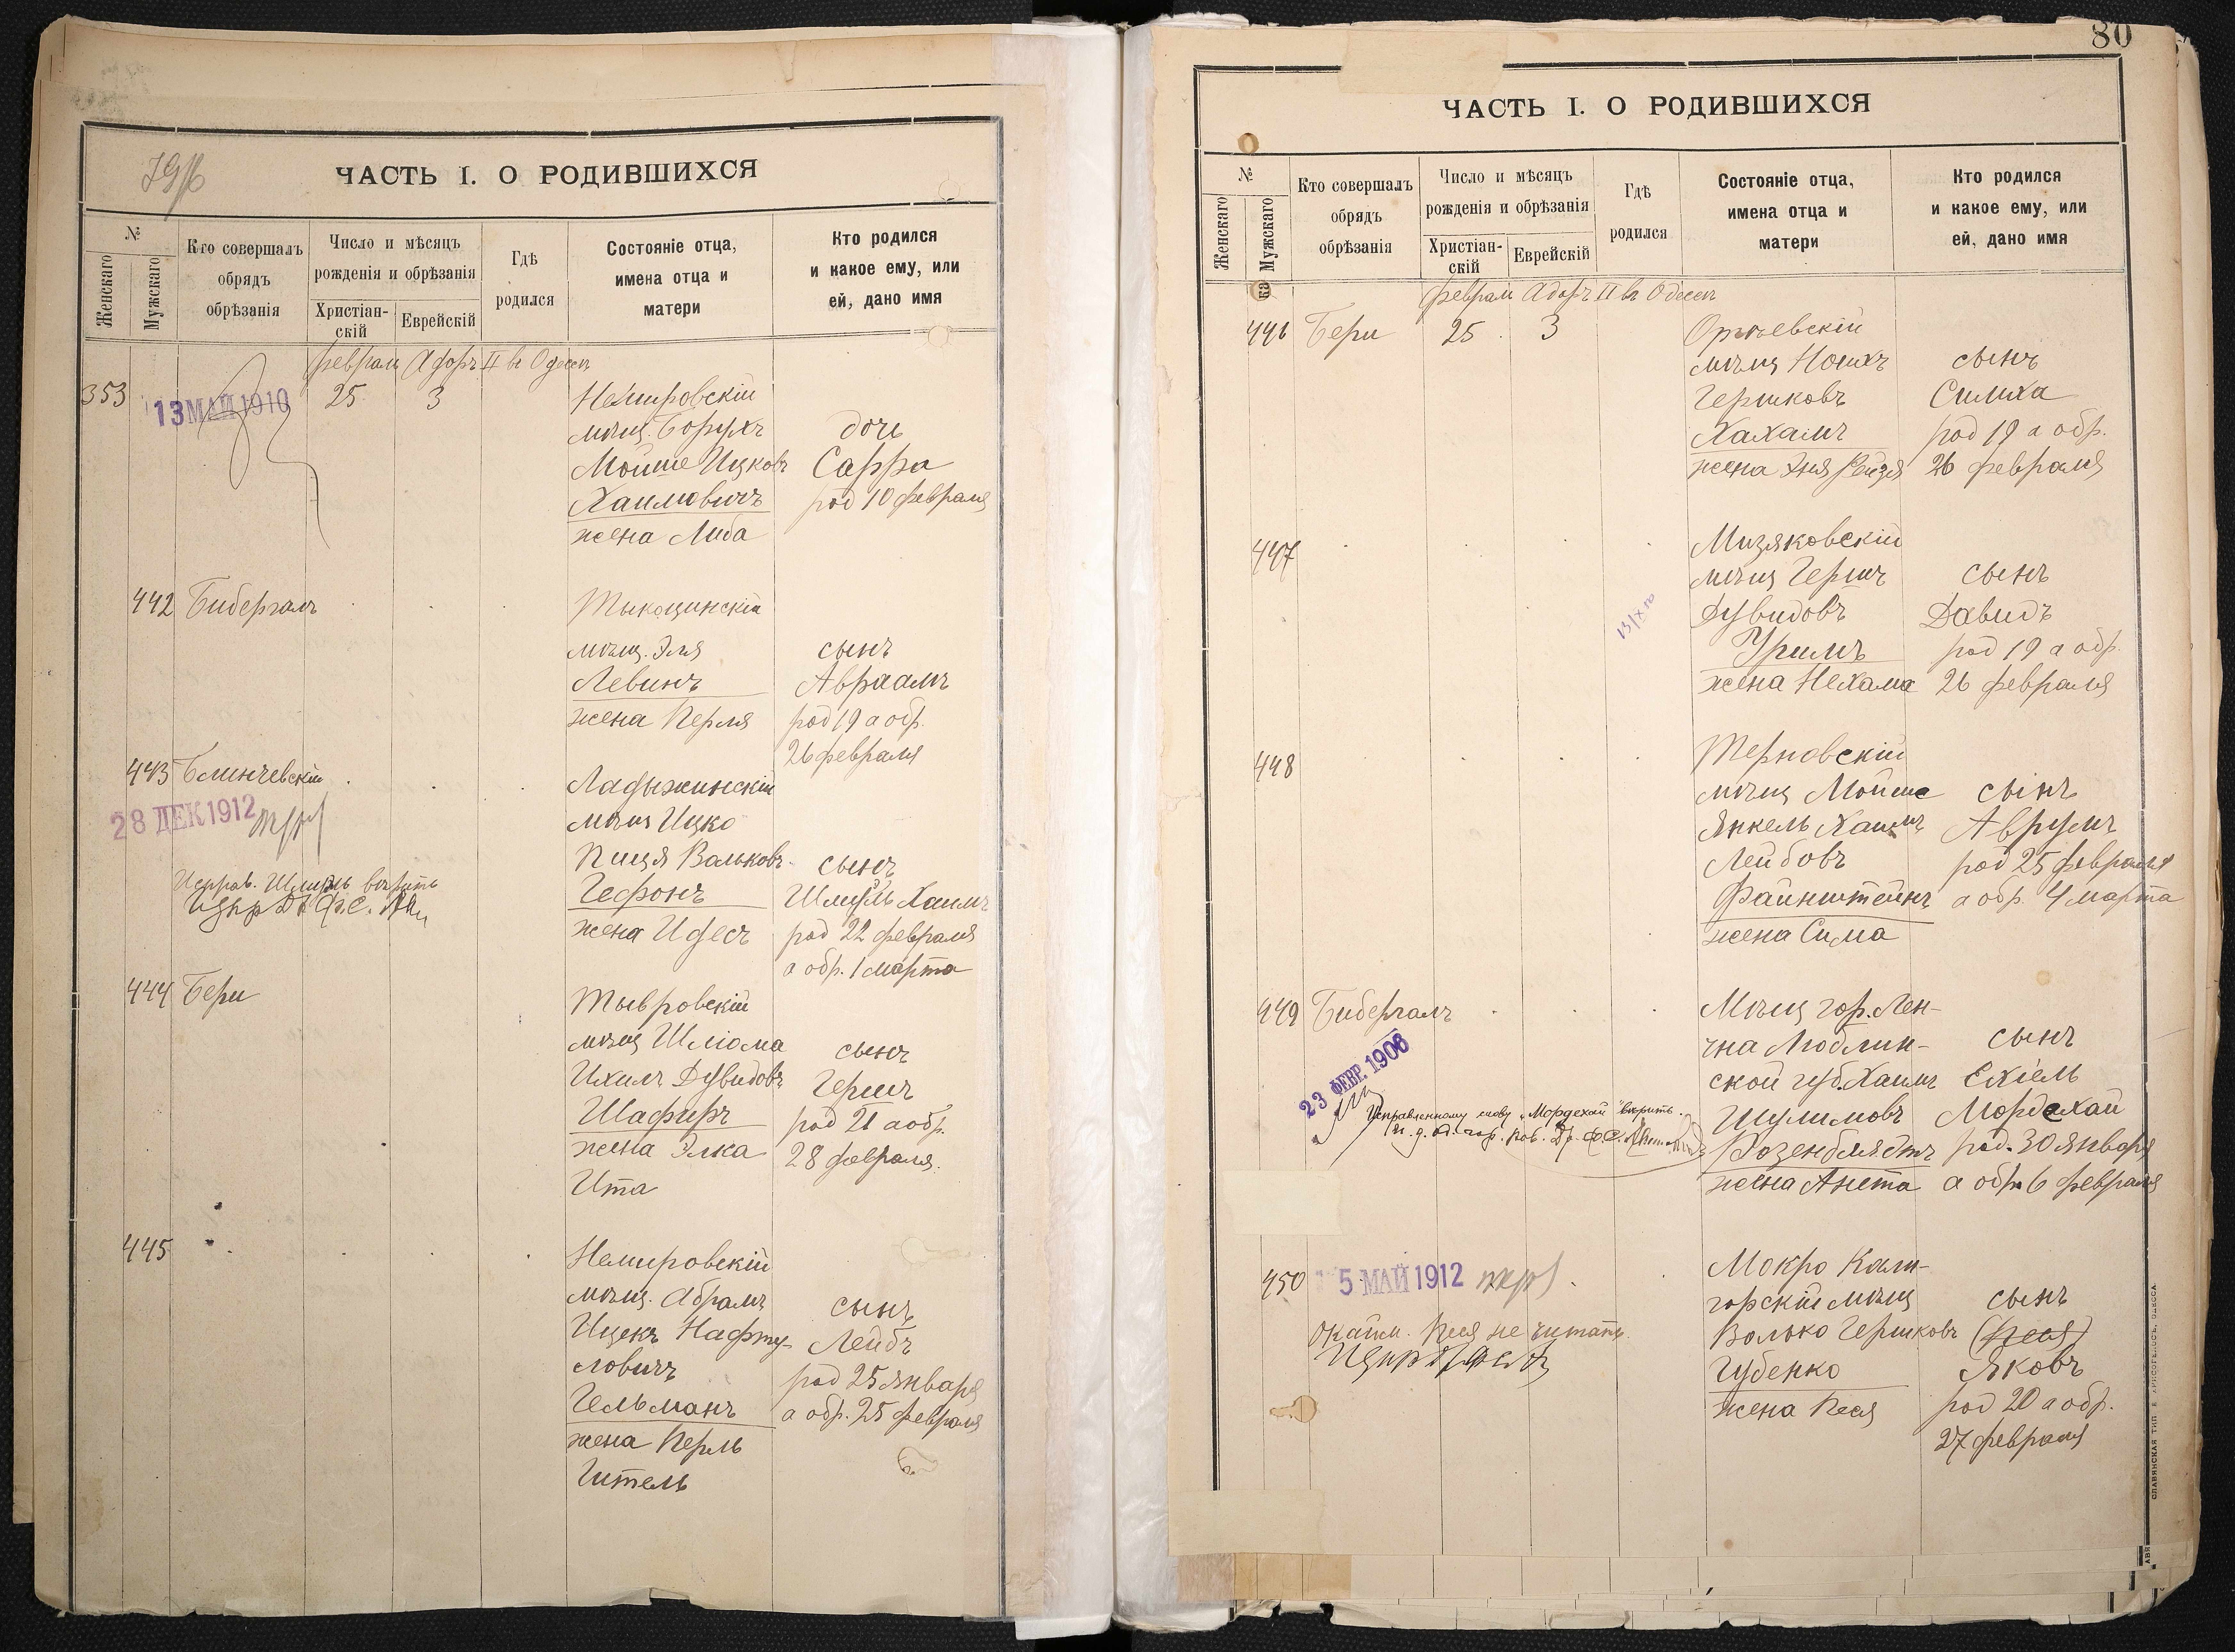 ЧАСТЬ I. О РОДИВШИХСЯ
№
Женскаго
Мужскаго
Кто совершалъ
обрядъ
обрѣзанія
Число и мѣсяцъ
рожденія и обрѣзанія
Христіан-
скій
Еврейскій
Гдѣ
родился
Состояніе отца,
имена отца и
матери
Кто родился
и какое ему, или
ей, дано имя
февраля Адоръ II въ Одессѣ
353
13 МАЙ 1910
25
3
Немировскій
мѣщ. Борухъ
Мойше Ицковъ
Хаимовичъ
жена Либа
дочь
Сарра
род 10 февраля
442 Бибергалъ
Тыкоцинскій
мѣщ. Эля
Левинъ
жена Перля
сынъ
Авраамъ
род 19 а обр.
26 февраля
443 Блинчевскій
28 ДЕК 1912
Исправ. Шмуль вѣрить
Ладыжинскій
мѣщ Ицко
Пиця Вольковъ
Гефонъ
жена Идесъ
сынъ
Шмуль Хаимъ
род 22 февраля
а обр. 1 марта
444 Бери
Тывровскій
мѣщ Шліома
Ихилъ Дувидовъ
Шафиръ
жена Элка
Ита
сынъ
Гершъ
род 21 а обр.
28 февраля.
445
Немировскій
мѣщ. Абрамъ
Ицекъ Нафту-
ловичъ
Гельманъ
жена Перль
Гитель
сынъ
Лейбъ
род 25 января
а обр. 25 февраля
80
ЧАСТЬ I. О РОДИВШИХСЯ
№
Женскаго
Мужскаго
Кто совершалъ
обрядъ
обрѣзанія
Число и мѣсяцъ
рожденія и обрѣзанія
Христіан-
скій
Еврейскій
Гдѣ
родился
Состояніе отца,
имена отца и
матери
Кто родился
и какое ему, или
ей, дано имя
февраля Адоръ II въ Одессѣ
446 Бери 25 3
Оргѣевскій
мѣщ Ноихъ
Гершковъ
Хахамъ
жена Эня Рейзя
сынъ
Симха
род 19 а обр.
26 февраля
447
Мизяковскій
мѣщ Гершъ
Дувидовъ
Уримъ
жена Нехама
сынъ
Давидъ
род 19 а обр.
26 февраля
448
Терновскій
мѣщ Мойше
Янкель Хаимъ
Лейбовъ
Файнштейнъ
жена Сима
сынъ
Аврумъ
род 25 февраля
а обр. 4 марта
449 Бибергалъ
23 ФЕВР. 1906
Исправленному слову „Мордехай" вѣрить.
Мѣщ гор. Лен-
чна Люблин-
ской губ. Хаимъ
Шулимовъ
Розенблядтъ
жена Анета
сынъ
Ехіель
Мордехай
род. 30 января
а обр 6 февраля
450
5 МАЙ 1912
Окайм. Песя не читать.
Мокро Кали-
горскій мѣщ
Волько Гершковъ
Губенко
жена Песя
сынъ
(Песя)
Яковъ
род 20 а обр.
27 февраля
СЛАВЯНСКАЯ ТИП. Е. ХРИСОГЕЛОСЪ, ОДЕССА.